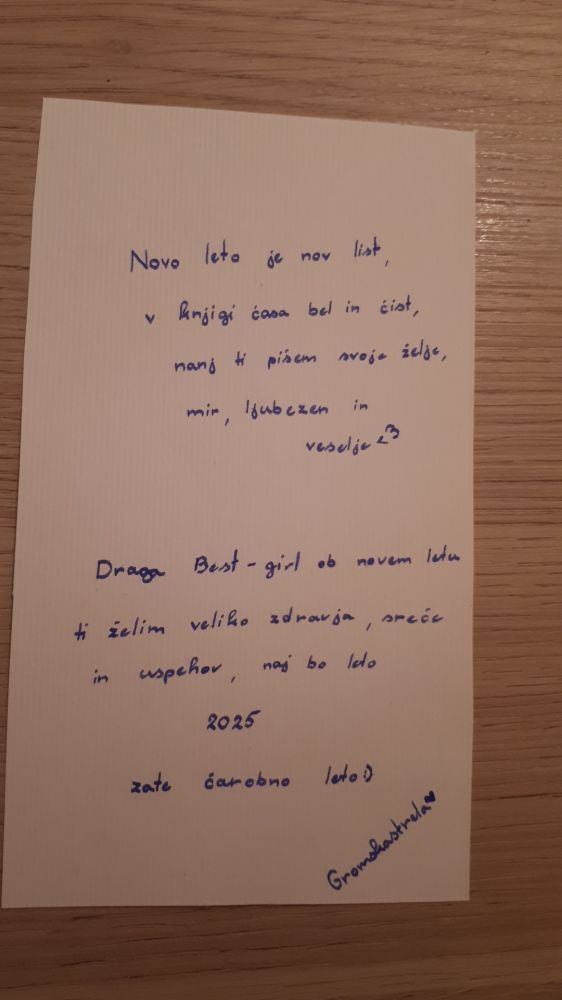 Novo leto je nov list,
v knjigi časa bel in čist,
nanj ti pišem svoje želje,
mir, ljubezen in
veselje <3
Draga Best-girl ob novem letu
ti želim veliko zdravja, sreče
in uspehov, naj bo leto
2025
zate čarobno leto :)
Gromskastrela♥